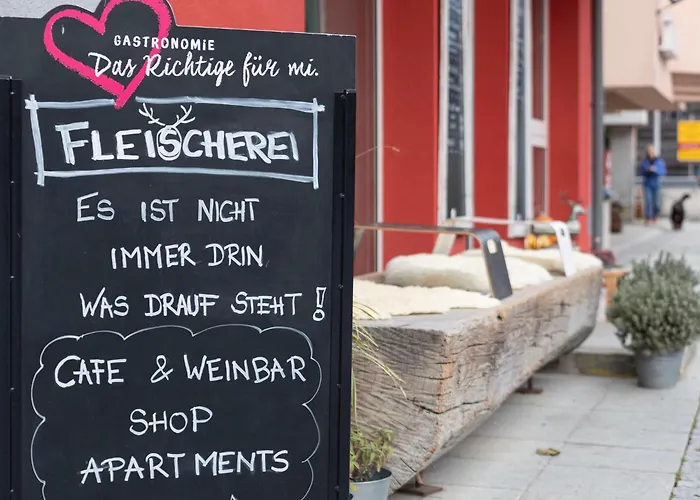 GASTRONOMiE
Das Richtige für mi.
FLEISCHEREI
ES IST NICHT
IMMER DRIN
WAS DRAUF STEHT!
CAFE & WEINBAR
SHOP
APARTMENTS